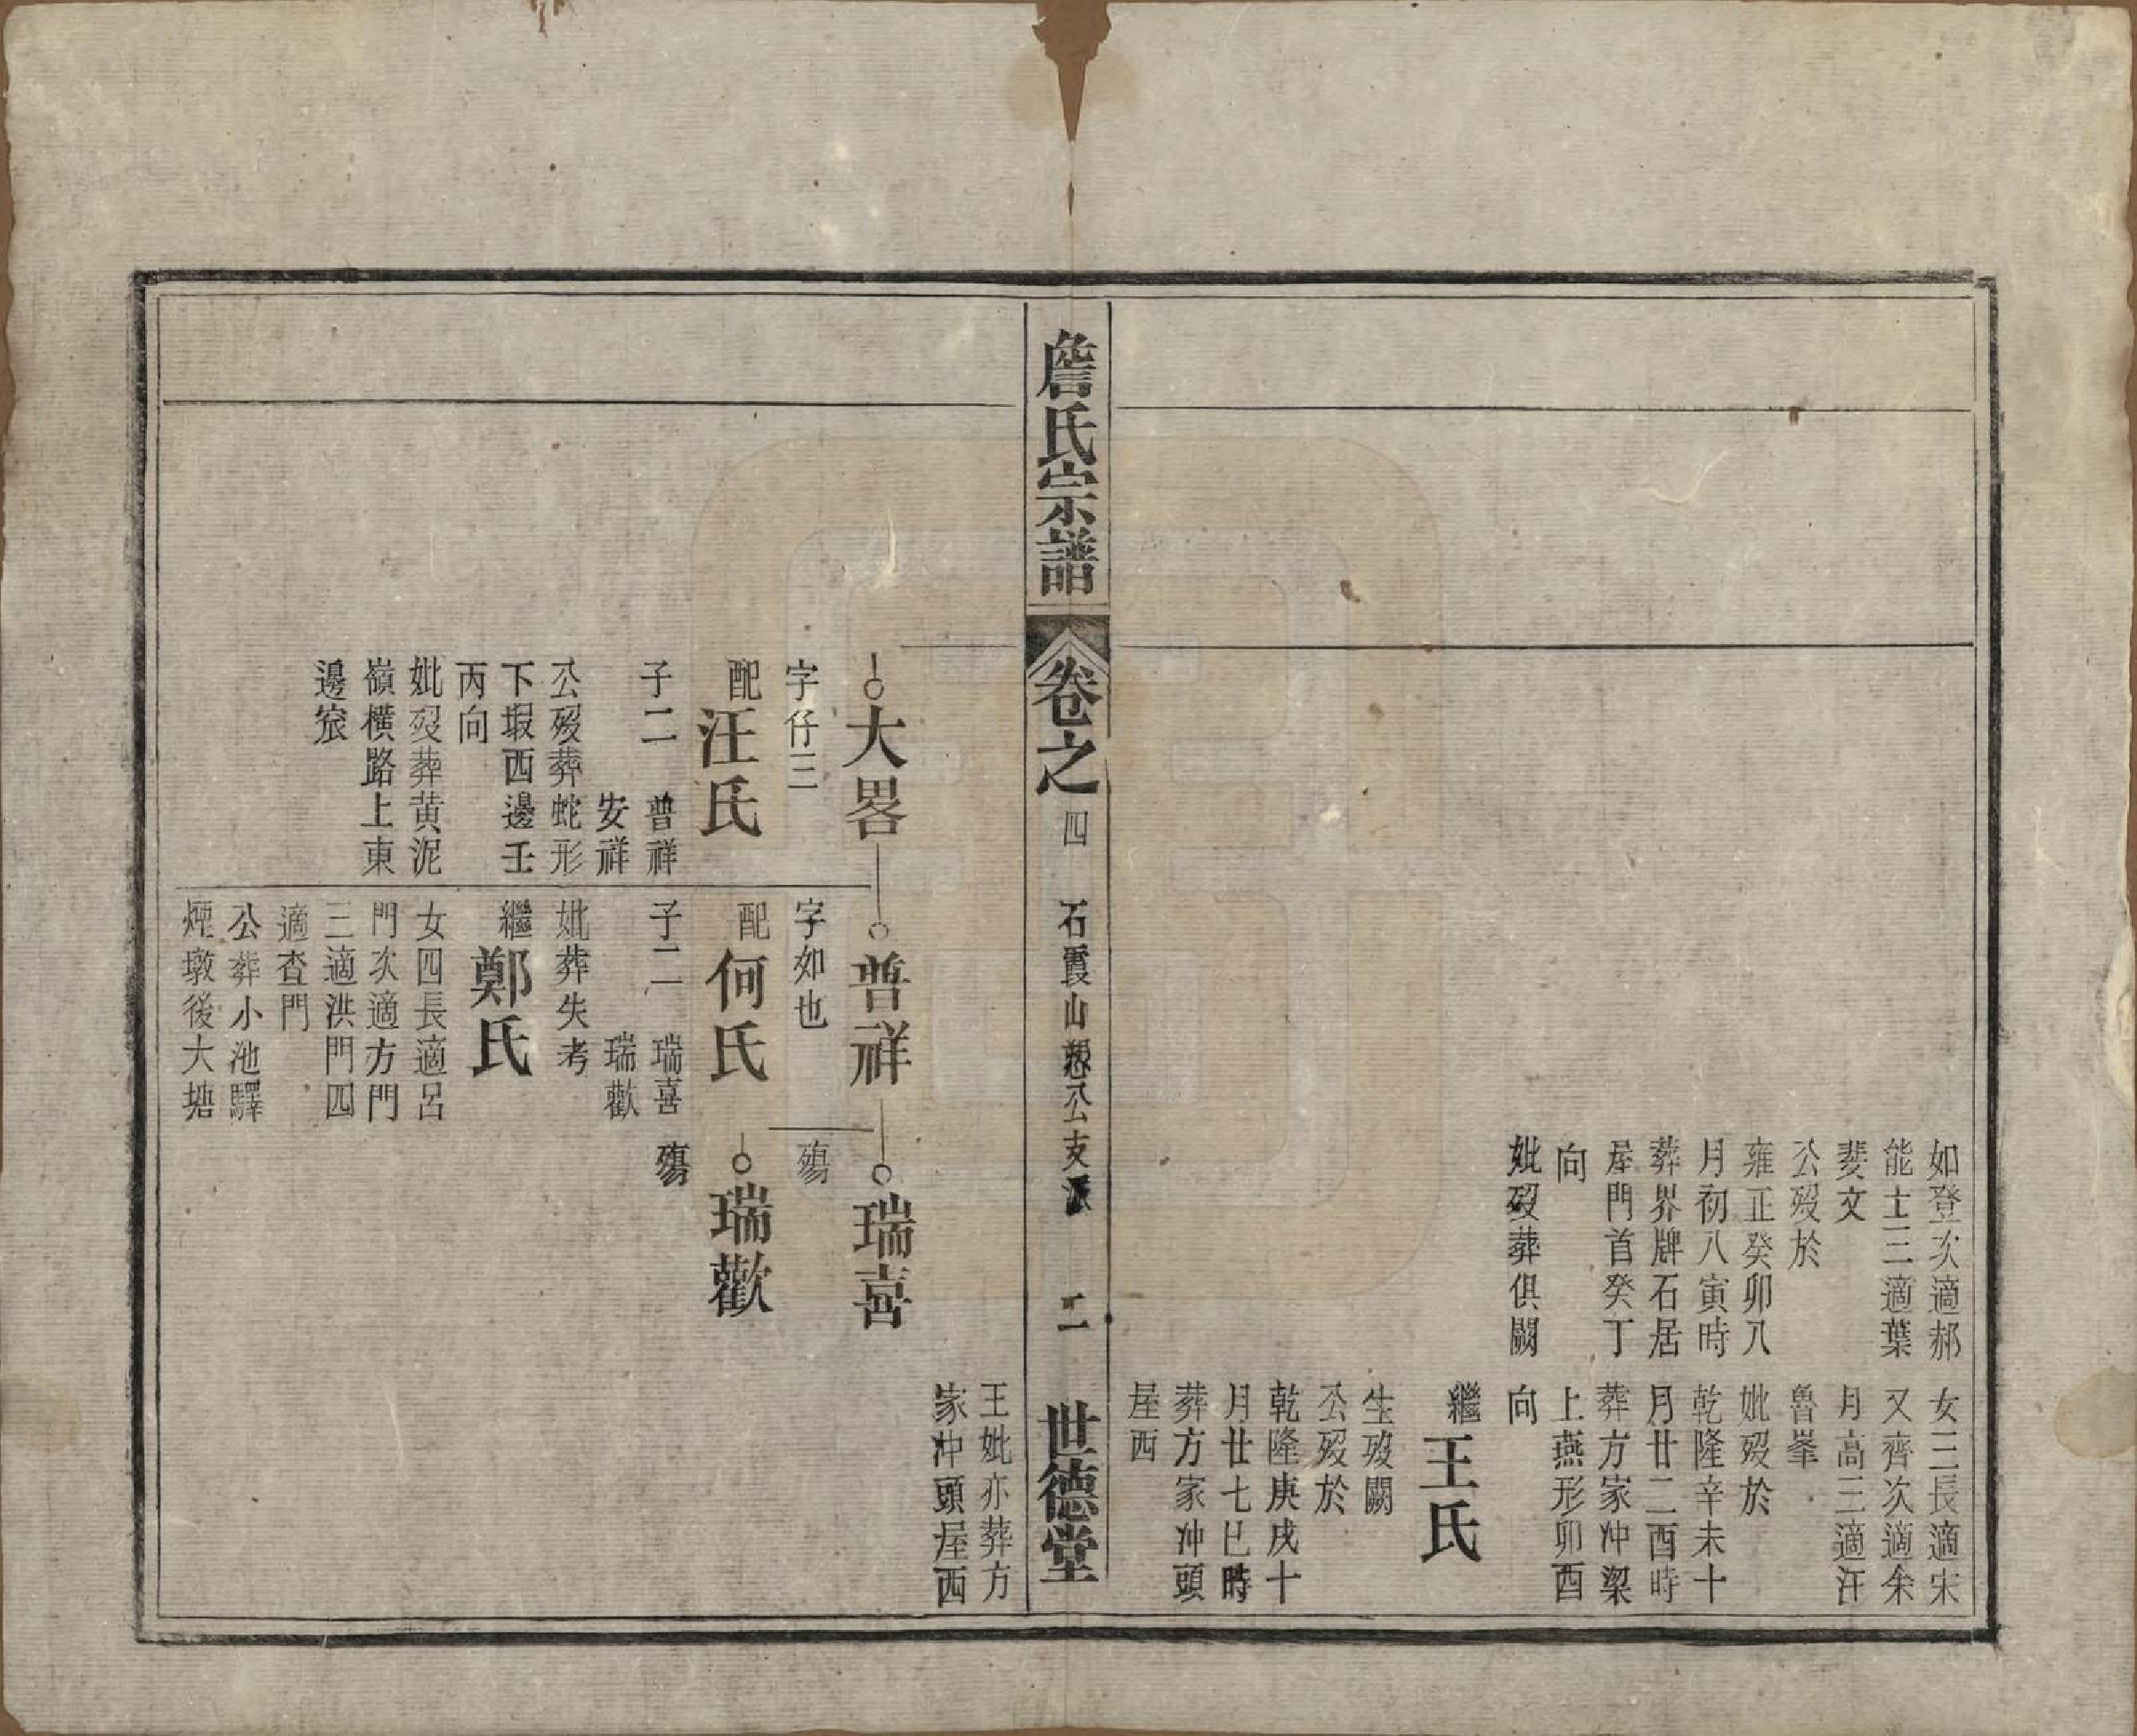 如登次適郝
能士三適葉
斐文
公歿於
雍正癸卯八
月初八寅時
葬界牌石居
屋門首癸丁
向
妣歿葬俱闕
女三長適宋
又齊次適余
月高三適汪
魯峯
妣歿於
乾隆辛未十
月廿二酉時
葬方家冲梁
上燕形卯酉
向
繼王氏
生歿闕
公歿於
乾隆庚戌十
月廿七巳時
葬方家冲頭
屋西
詹氏宗譜
卷之四
石霞山愬公支派
二
世德堂
王妣亦葬方
家冲頭屋西
大畧
字仔三
配汪氏
子二 普祥
安祥
公歿葬蛇形
下塅西邊壬
丙向
妣歿葬黄泥
嶺橫路上東
邊窊
普祥
字如也
配何氏
子二 瑞喜
瑞歡
妣葬失考
繼鄭氏
女四長適呂
門次適方門
三適洪門四
適查門
公葬小池驛
煙墩後大塘
瑞喜
殤
瑞歡
殤